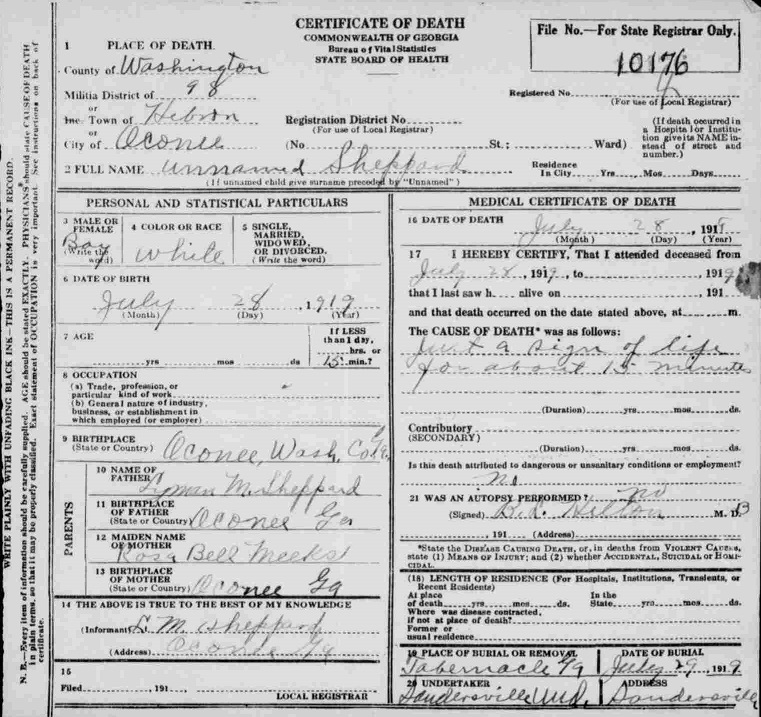 CERTIFICATE OF DEATH
COMMONWEALTH OF GEORGIA
Bureau of Vital Statistics
STATE BOARD OF HEALTH
File No.—For State Registrar Only.
10176
1 PLACE OF DEATH.
County of Washington
Militia District of 98
or
Inc. Town of Hebron
or
City of Oconee
Registration District No
(For use of Local Registrar)
Registered No
(For use of Local Registrar)
(No St.; Ward)
(If death occurred in a Hospital or Institution give its NAME instead of street and number.)
2 FULL NAME Unnamed Sheppard
(If unnamed child give surname preceded by "Unnamed")
Residence In City Yrs Mos Days
PERSONAL AND STATISTICAL PARTICULARS
3 MALE OR FEMALE Boy (Write the word)
4 COLOR OR RACE White
5 SINGLE, MARRIED, WIDOWED, OR DIVORCED. (Write the word)
6 DATE OF BIRTH
July 28, 1919
(Month) (Day) (Year)
7 AGE
yrs mos ds
If LESS than 1 day, hrs. or 15 min.?
8 OCCUPATION
(a) Trade, profession, or particular kind of work
(b) General nature of industry, business, or establishment in which employed (or employer)
9 BIRTHPLACE (State or Country) Oconee, Wash. Co. Ga
PARENTS
10 NAME OF FATHER Lyman M. Sheppard
11 BIRTHPLACE OF FATHER (State or Country) Oconee Ga
12 MAIDEN NAME OF MOTHER Rosa Bell Meeks
13 BIRTHPLACE OF MOTHER (State or Country) Oconee Ga
14 THE ABOVE IS TRUE TO THE BEST OF MY KNOWLEDGE
(Informant) L. M. Sheppard
(Address) Oconee Ga
15
Filed , 191
LOCAL REGISTRAR
MEDICAL CERTIFICATE OF DEATH
16 DATE OF DEATH July 28, 191
(Month) (Day) (Year)
17 I HEREBY CERTIFY, That I attended deceased from
July 28, 1919, to , 1919
that I last saw h alive on , 191
and that death occurred on the date stated above, at m.
The CAUSE OF DEATH* was as follows:
Just a sign of life
for about 15 minutes
(Duration) yrs. mos. ds.
Contributory
(SECONDARY)
(Duration) yrs. mos. ds.
Is this death attributed to dangerous or unsanitary conditions or employment?
no
21 WAS AN AUTOPSY PERFORMED? no
(Signed) Hilton M. D
, 191 (Address)
*State the DISEASE CAUSING DEATH, or, in deaths from VIOLENT CAUSES, state (1) MEANS OF INJURY; and (2) whether ACCIDENTAL, SUICIDAL OR HOMICIDAL.
(18) LENGTH OF RESIDENCE (For Hospitals, Institutions, Transients, or Recent Residents)
At place of death yrs. mos. ds. In the State yrs. mos. ds.
Where was disease contracted, if not at place of death?
Former or usual residence
19 PLACE OF BURIAL OR REMOVAL
Tabernacle Ga
DATE OF BURIAL
July 29 1919
20 UNDERTAKER
Sandersville Und.
ADDRESS
Sandersville
N. B.—Every item of information should be carefully supplied. AGE should be stated EXACTLY. PHYSICIANS should state CAUSE OF DEATH in plain terms, so that it may be properly classified. Exact statement of OCCUPATION is very important. See instructions on back of certificate.
WRITE PLAINLY WITH UNFADING BLACK INK—THIS IS A PERMANENT RECORD.